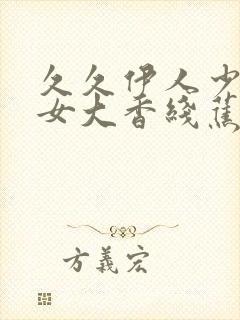 久久伊人少
女大香綫蕉
方義宏